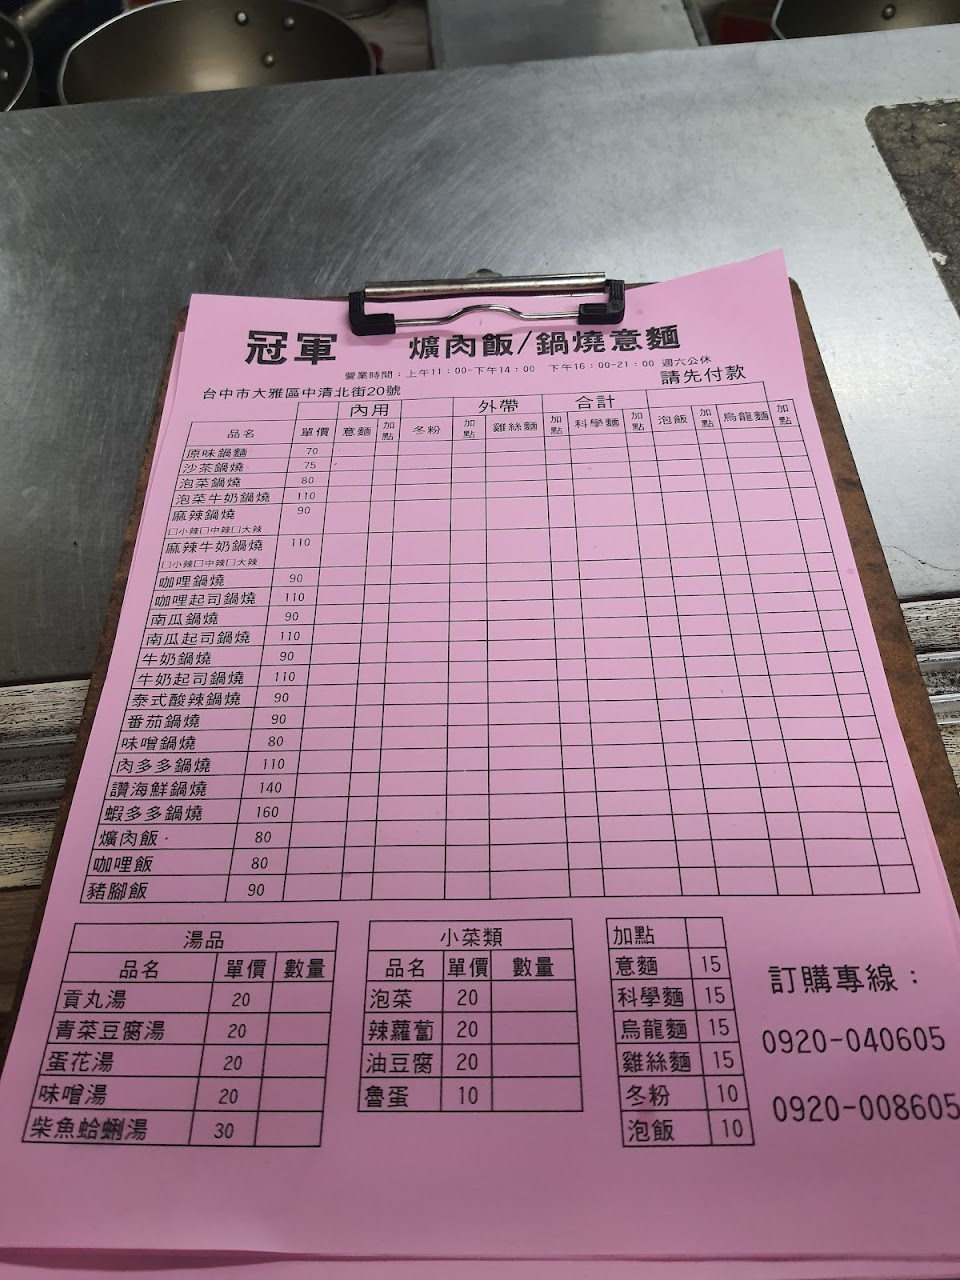 冠軍 爌肉飯/鍋燒意麵
營業時間：上午11：00-下午14：00 下午16：00-21：00 週六公休
台中市大雅區中清北街20號 請先付款
內用 外帶 合計
品名 單價 意麵 加點 冬粉 加點 雞絲麵 加點 科學麵 加點 泡飯 加點 烏龍麵 加點
原味鍋麵 70
沙茶鍋燒 75
泡菜鍋燒 80
泡菜牛奶鍋燒 110
麻辣鍋燒 90
□小辣□中辣□大辣
麻辣牛奶鍋燒 110
□小辣□中辣□大辣
咖哩鍋燒 90
咖哩起司鍋燒 110
南瓜鍋燒 90
南瓜起司鍋燒 110
牛奶鍋燒 90
牛奶起司鍋燒 110
泰式酸辣鍋燒 90
番茄鍋燒 90
味噌鍋燒 80
肉多多鍋燒 110
讚海鮮鍋燒 140
蝦多多鍋燒 160
爌肉飯 80
咖哩飯 80
豬腳飯 90
湯品
品名 單價 數量
貢丸湯 20
青菜豆腐湯 20
蛋花湯 20
味噌湯 20
柴魚蛤蜊湯 30
小菜類
品名 單價 數量
泡菜 20
辣蘿蔔 20
油豆腐 20
魯蛋 10
加點
意麵 15
科學麵 15
烏龍麵 15
雞絲麵 15
冬粉 10
泡飯 10
訂購專線：
0920-040605
0920-008605